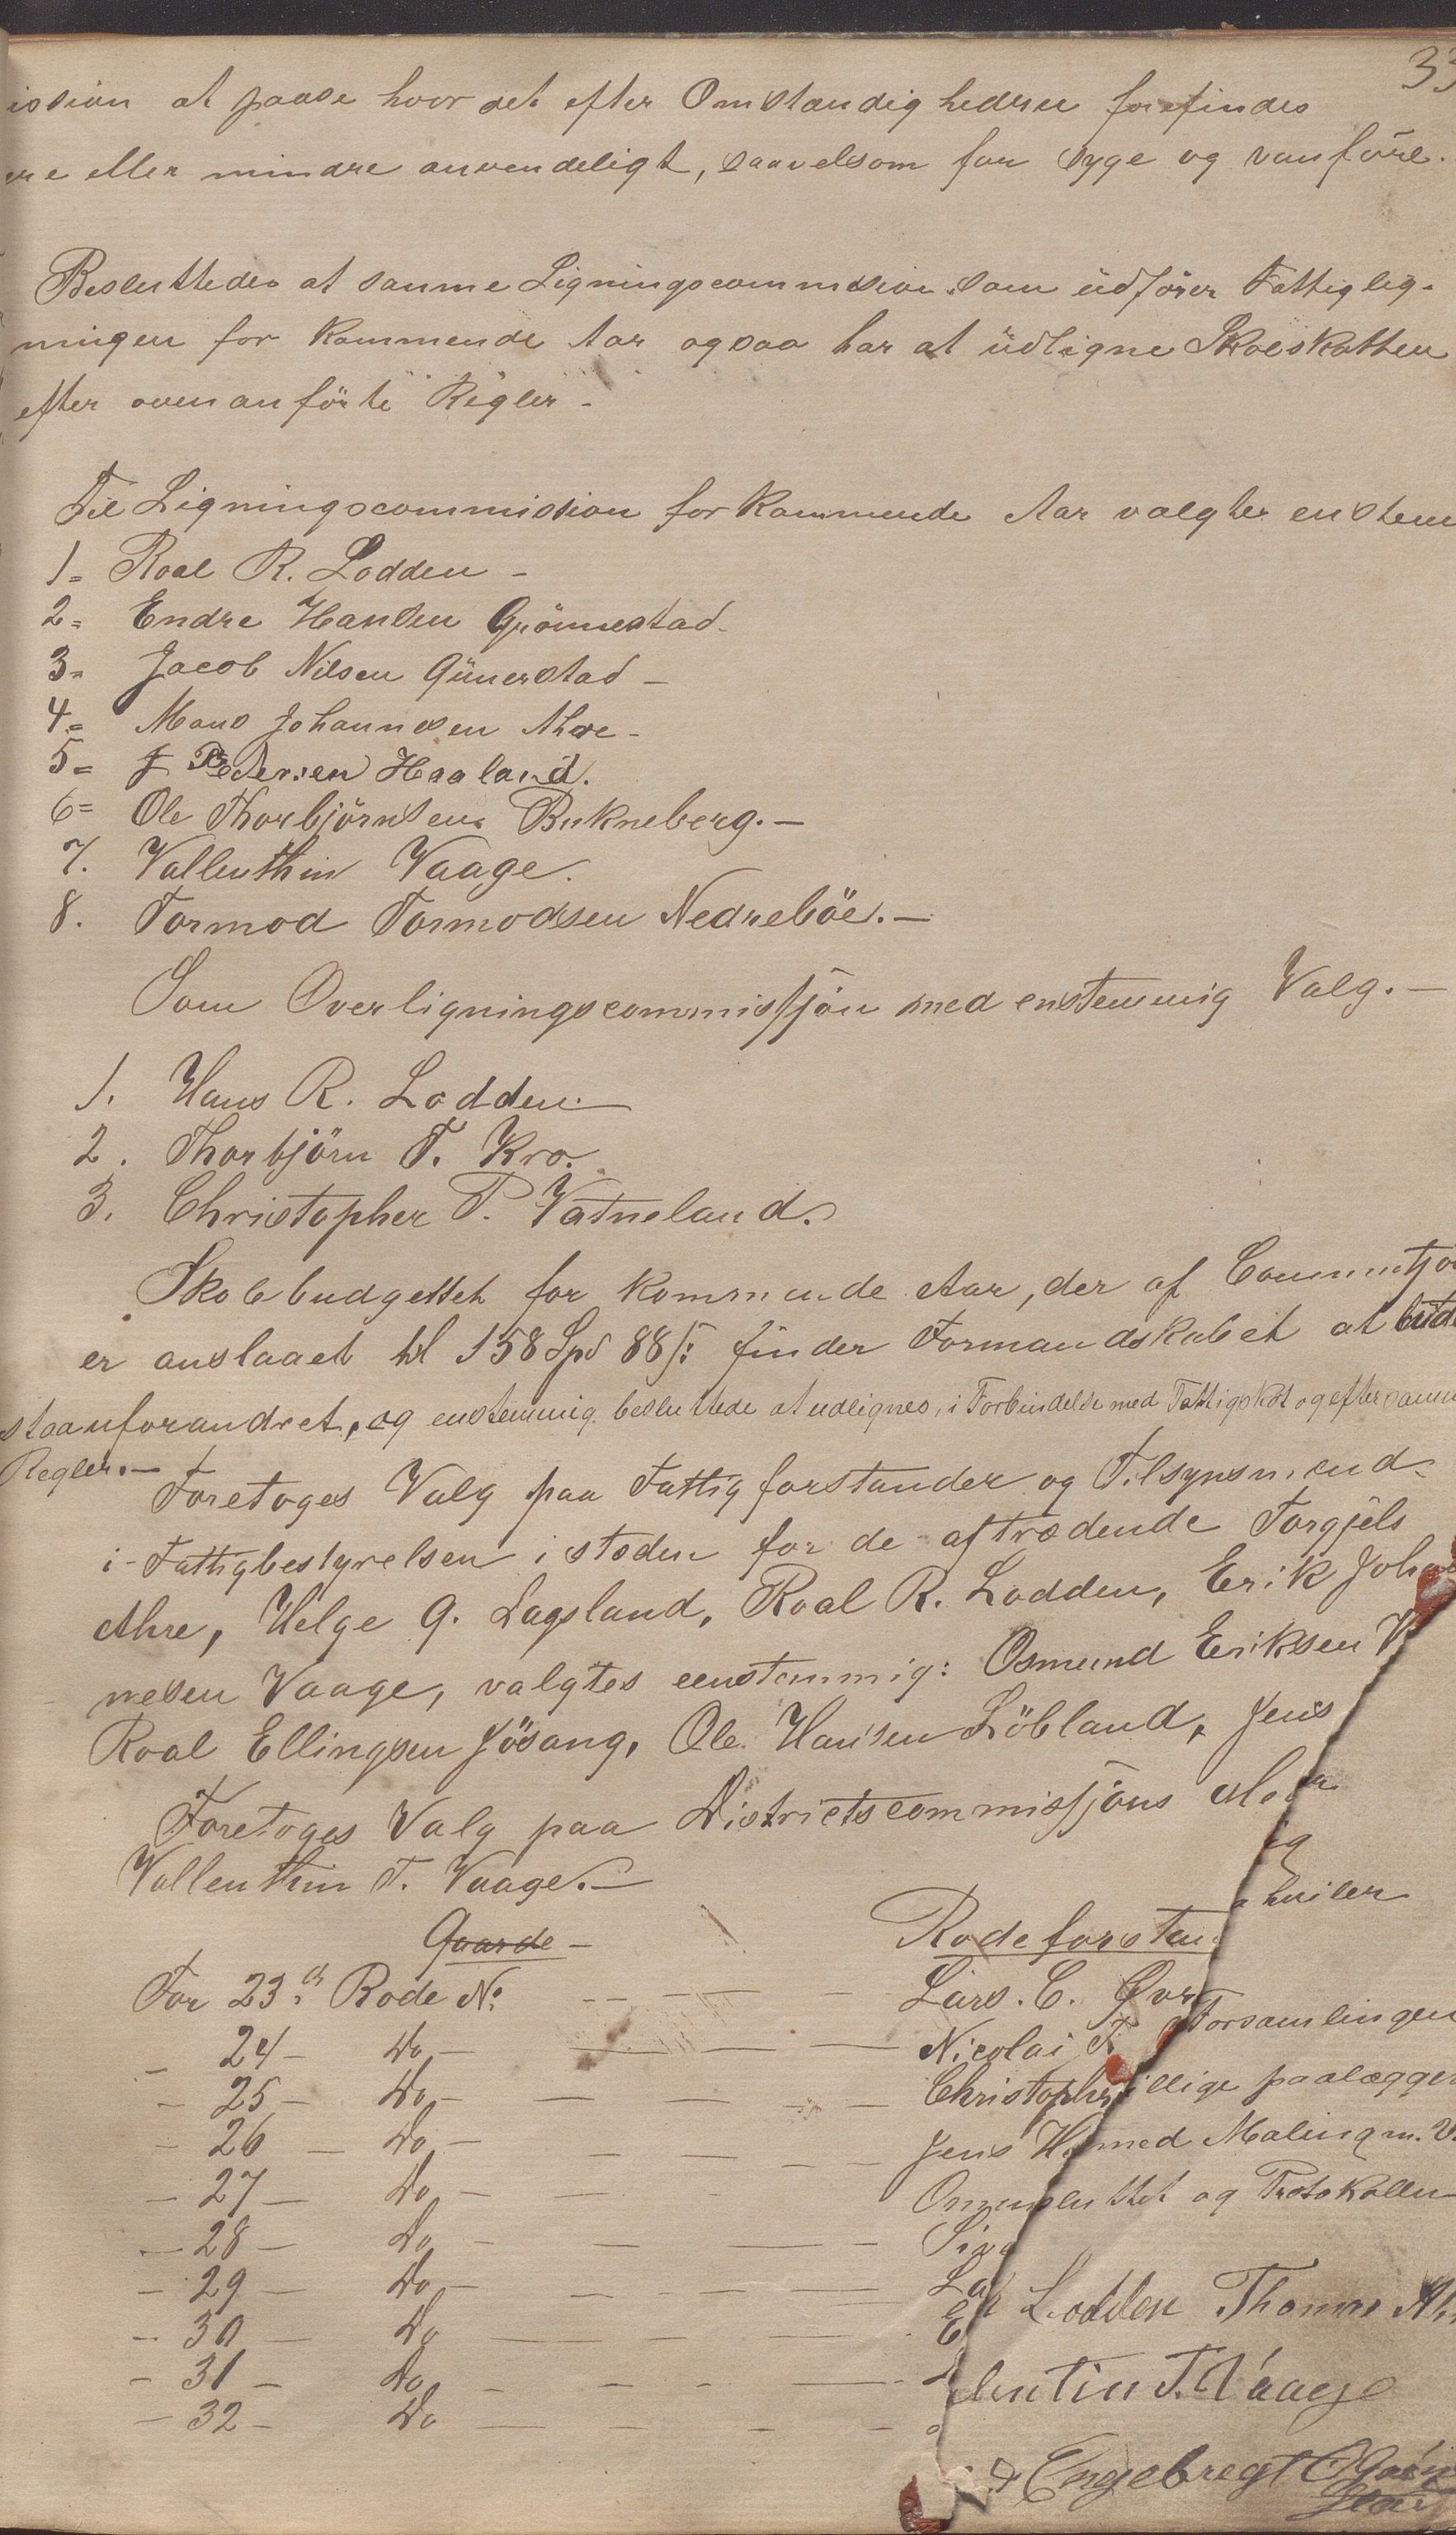 33
ission at paase hvor det efter Omstændighedrne forefindes
ere eller mindre anvendeligt, saavelsom for syge og vanföre.
Besluttedes at samme Ligningscommission som üdförer Fattiglig-
ningen for kommende Aar ogsaa har at üdligne Skoleskatten
efter ovenanförte Regler -
Til Ligningscommission for kommende Aar valgtes enstem
1= Roal R. Lodden -
2= Endre Hansen Grönnestad -
3= Jacob Nilsen Günerstad -
4= Mans Johannesen Ahre -
5= J Pedersen Haaland.
6= Ole Thorbjörnsen Bukneberg. -
7. Vallenthin Vaage.
8. Tormod Tormodsen Nedreböe. -
Som Overligningscommissjön med enstemmig Valg. -
1. Hans R. Lodden. -
2. Thorbjörn T. Kro.
3. Christopher P. Vatneland.
Skolebudgettet for kommende Aar, der af
er anslaaet til 158 Spd 88 s: finder Formandskabet at
staa uforandret, og enstemmig besluttede at udlignes, i Forbindelse med Fattigskat og efter samm
Regler. -
Foretoges Valg paa Fattigforstander og Tilsynsmænd
i Fattigbestyrelsen i stæden for de aftrædende Torgjels
Ahre, Helge G. Lagsland, Roal R. Lodden, Erik Joha
nesen Vaage, valgtes eenstemmig: Osmund Eriksen V
Roal Ellingsen Jösang, Ole Hansen Löbland, Jens
Foretoges Valg paa Districtscommissjöns
Vallenthin T. Vaage. -
ig
huiler
Gaarde - Rodeforstan
For 23de Rode No. - - - Lars. C. Øvr
Forsamlingen
- 24 - Do - - - Nicolai T.
- 25 - Do - - - Christopher
illige paalægger
- 26 - Do - - - Jens H
med Maling m. V.
- 27 - Do - - - Omun
sluttet og Protokollen
- 28 - Do - - -
- 29 - Do - - - La
Lodden Thomas Ah
- 30 - Do - - -
- 31 - Do - - -
lentin T. Vaage
- 32 - Do - - -
Engebregt